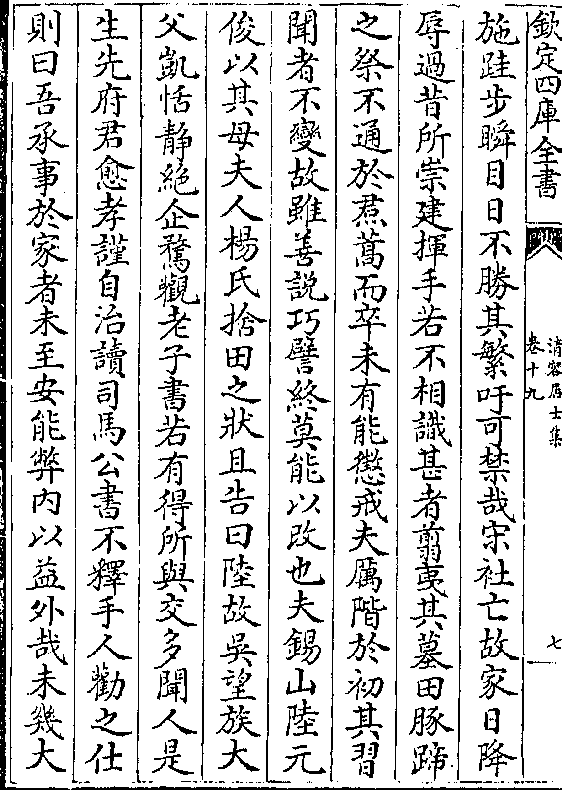 欽定四庫全書
清容居士集
卷十九
七
施跬步瞬目日不勝其繁吁可禁哉宋社亡故家日降
辱過昔所崇建揮手若不相識甚者翦夷其墓田豚蹄
之祭不通於焄蒿而卒未有能懲戒夫厲階於初其習
聞者不變故雖善說巧譬終莫能以改也夫錫山陸元
俊以其母夫人楊氏捨田之狀且告曰陸故吳望族大
父凱恬靜絕企騖觀老子書若有得所與交多聞人是
生先府君愈孝謹自治讀司馬公書不釋手人勸之仕
則曰吾承事於家者未至安能弊內以益外哉未幾大